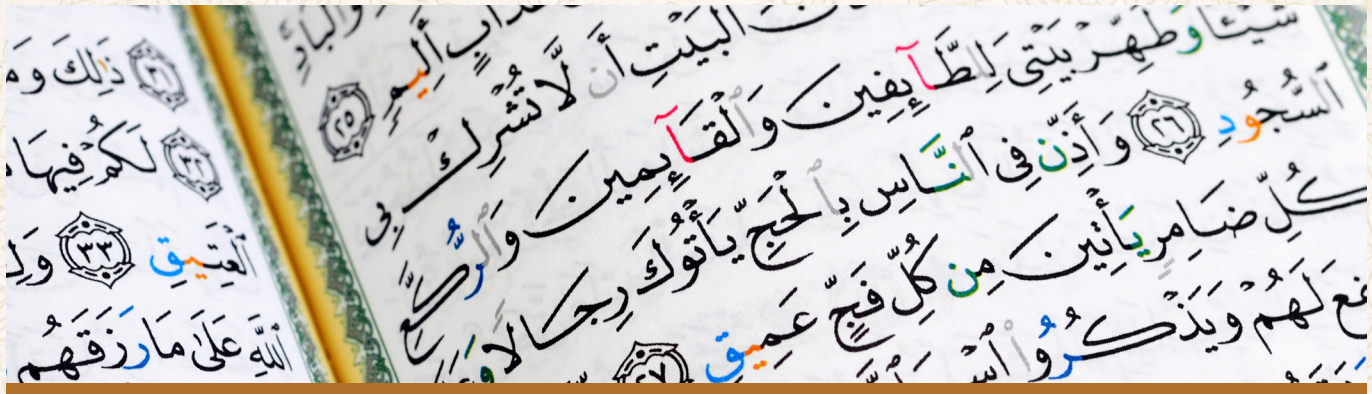 وَٱلْبَادِ
أَلِيمٍ ٢٥
ٱلْبَيْتِ أَن لَّا تُشْرِكْ بِى
شَيْـًٔا وَطَهِّرْ بَيْتِىَ لِلطَّآئِفِينَ وَٱلْقَآئِمِينَ وَٱلرُّكَّعِ
ٱلسُّجُودِ ٢٦ وَأَذِّن فِى ٱلنَّاسِ بِٱلْحَجِّ يَأْتُوكَ رِجَالًا
كُلِّ ضَامِرٍ يَأْتِينَ مِن كُلِّ فَجٍّ عَمِيقٍ ٢٧
لَهُمْ وَيَذْكُرُوا۟
ذَٰلِكَ
لَكُمْ فِيهَا
ٱلْعَتِيقِ ٣٣
ٱللَّهِ عَلَىٰ مَا رَزَقَهُم